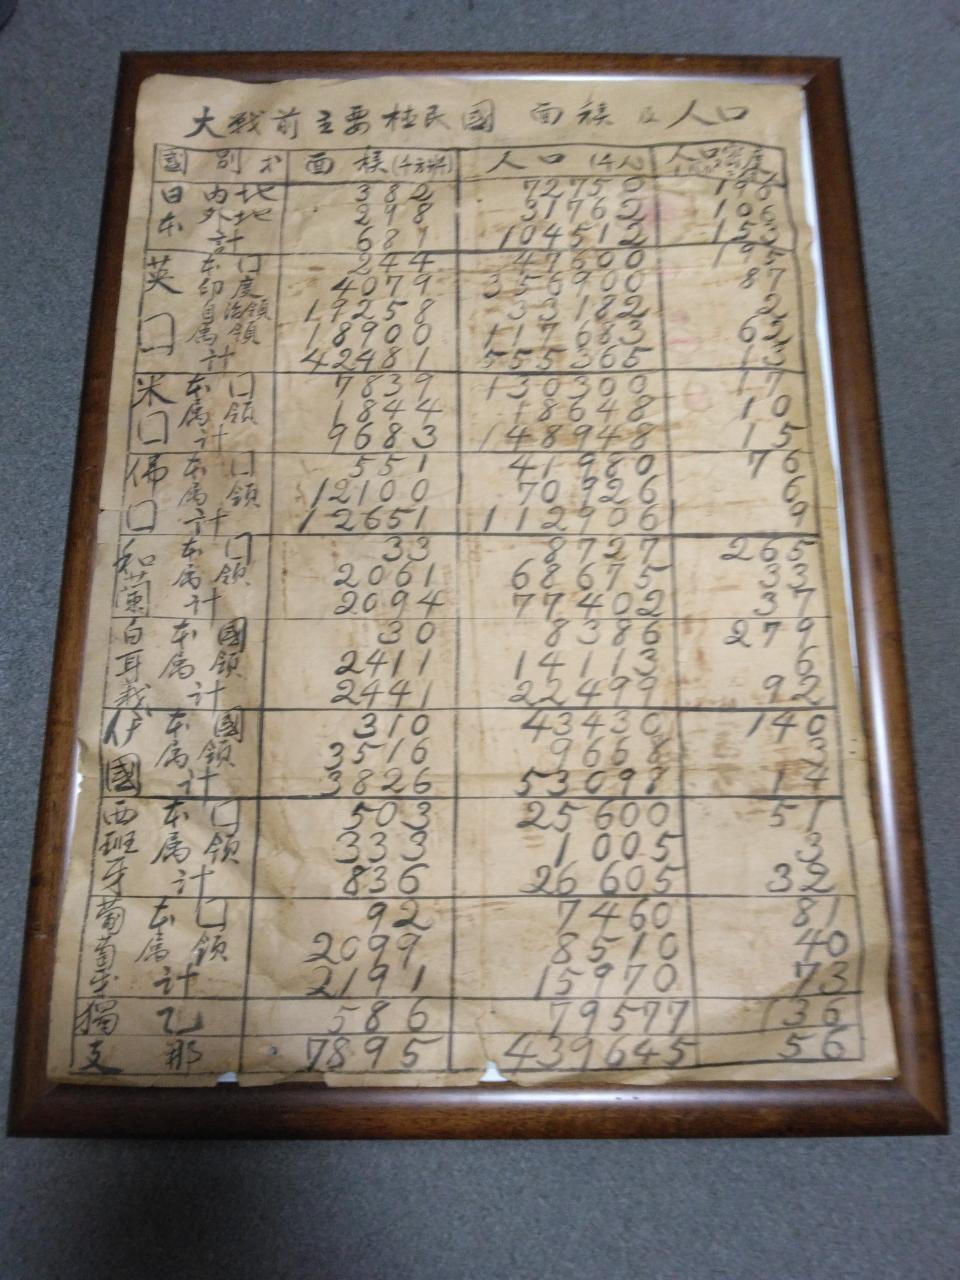 大戦前主要植民國 面積及人口
國別 面積(千方粁) 人口(千人) 人口密度
日本 内地 382 72750 196
外地 298 31762 106
計 681 104512 153
英口 本口 244 47600 195
印度 4079 356900 87
自治領 19258 33182 2
属領 18900 117683 62
計 42481 555365 13
米口 本口 7839 130300 17
属領 1844 18648 10
計 9683 148948 15
佛口 本口 551 41980 76
属領 12100 70926 6
計 12651 112906 9
和蘭 本口 33 8727 265
属領 2061 68675 33
計 2094 77402 37
白耳義 本國 30 8386 279
属領 2411 14113 6
計 2441 22499 92
伊國 本國 310 43430 140
属領 3516 9668 3
計 3826 53098 14
西班牙 本口 503 25600 51
属領 333 1005 3
計 836 26605 32
葡萄牙 本口 92 7460 81
属領 2099 8510 40
計 2191 15970 73
獨乙 586 79577 136
支那 7895 439645 56